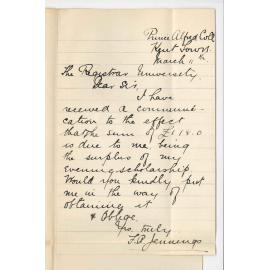 Prince Alfred Coll
Kent Town
March 11th
The Registrar University
Dear Sir,
I have
received a communi-
cation to the effect
that the sum of £1.18.0
is due to me being
the surplus of my
evening scholarship.
Would you kindly put
me in the way of
obtaining it
& Oblige
Yrs. truly
Jennings